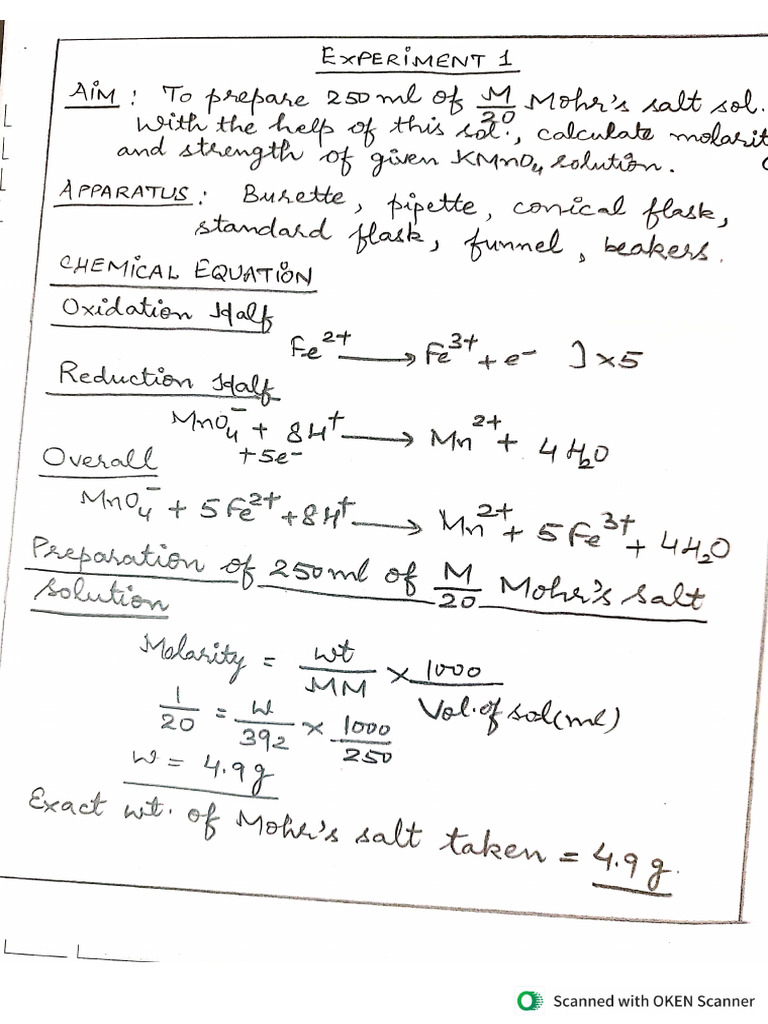 EXPERIMENT 1
AIM : To prepare 250 ml of M/20 Mohr's salt sol.
With the help of this sol., calculate molarit
and strength of given KMnO₄ solution.
APPARATUS : Burette, pipette, conical flask,
standard flask, funnel, beakers.
CHEMICAL EQUATION
Oxidation Half
Fe²⁺ ⟶ Fe³⁺ + e⁻ ] ×5
Reduction Half
MnO₄⁻ + 8H⁺ ⟶ Mn²⁺ + 4H₂O
+5e⁻
Overall
MnO₄⁻ + 5Fe²⁺ + 8H⁺ ⟶ Mn²⁺ + 5Fe³⁺ + 4H₂O
Preparation of 250 ml of M/20 Mohr's salt
solution
Molarity = wt/MM × 1000/Vol. of sol(ml)
1/20 = W/392 × 1000/250
W = 4.9 g
Exact wt. of Mohr's salt taken = 4.9 g.
Scanned with OKEN Scanner